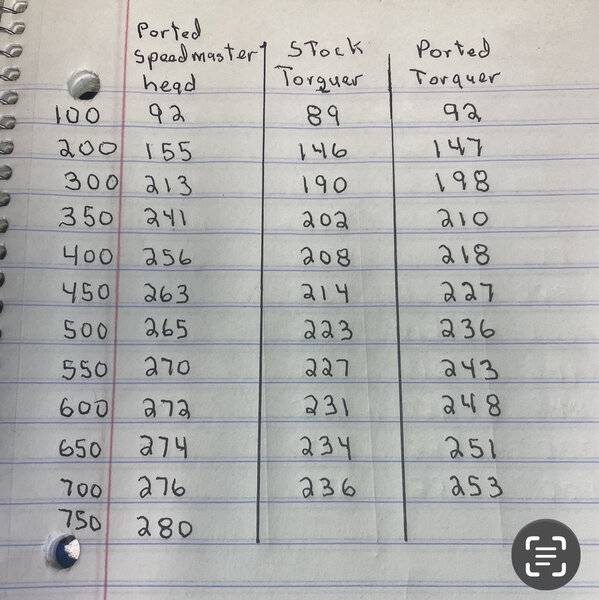 Ported Speedmaster head | Stock Torquer | Ported Torquer
100 92 89 92
200 155 146 147
300 213 190 198
350 241 202 210
400 256 208 218
450 263 214 227
500 265 223 236
550 270 227 243
600 272 231 248
650 274 234 251
700 276 236 253
750 280